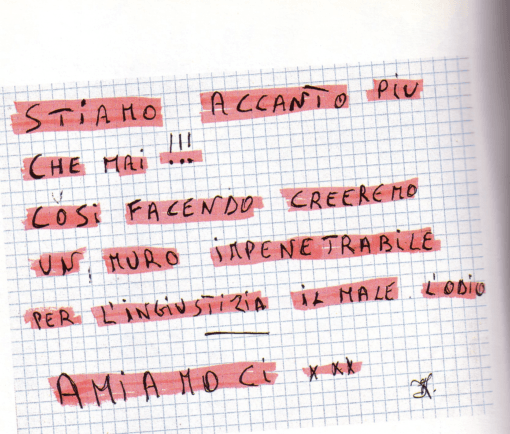 STIAMO ACCANTO PIU
CHE MAI !!!
COSI FACENDO CREEREMO
UN MURO IMPENETRABILE
PER L'INGIUSTIZIA IL MALE L'ODIO
AMIAMOCI xxx
K.